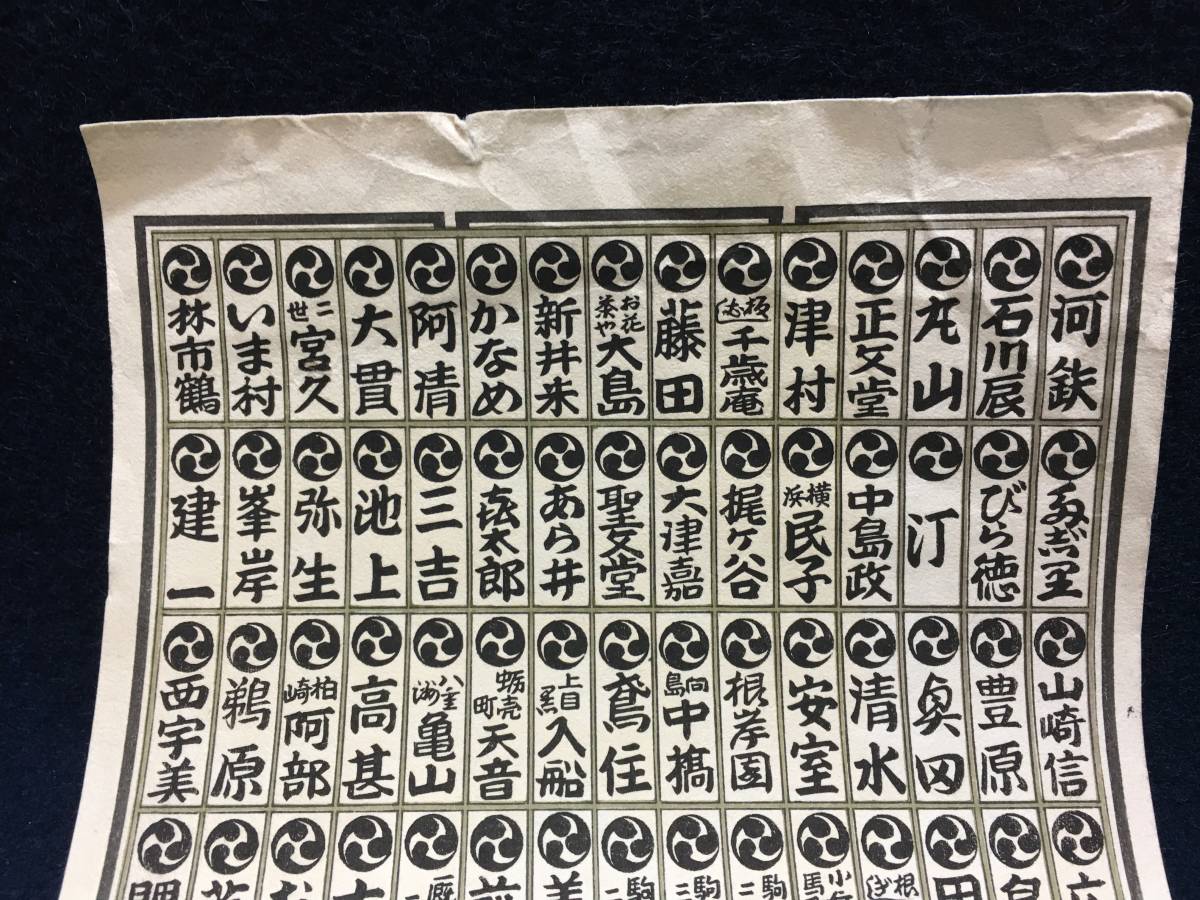 河鉄
石川辰
丸山
正文堂
津村
千歳庵
藤田
お花茶や 大島
新井朱
かなめ
阿清
大貫
二世 宮久
いま村
林市鶴
びら徳
汀
中島政
横浜 民子
梶ヶ谷
大津嘉
聖文堂
あら井
㐂太郎
三吉
池上
弥生
峯岸
建一
山崎信
豊原
貞岡
清水
安室
向島 中橋
根岸園
鳶住
上目黒 入船
蛎売町 天音
八重洲 亀山
高甚
柏崎 阿部
鵜原
西宇美